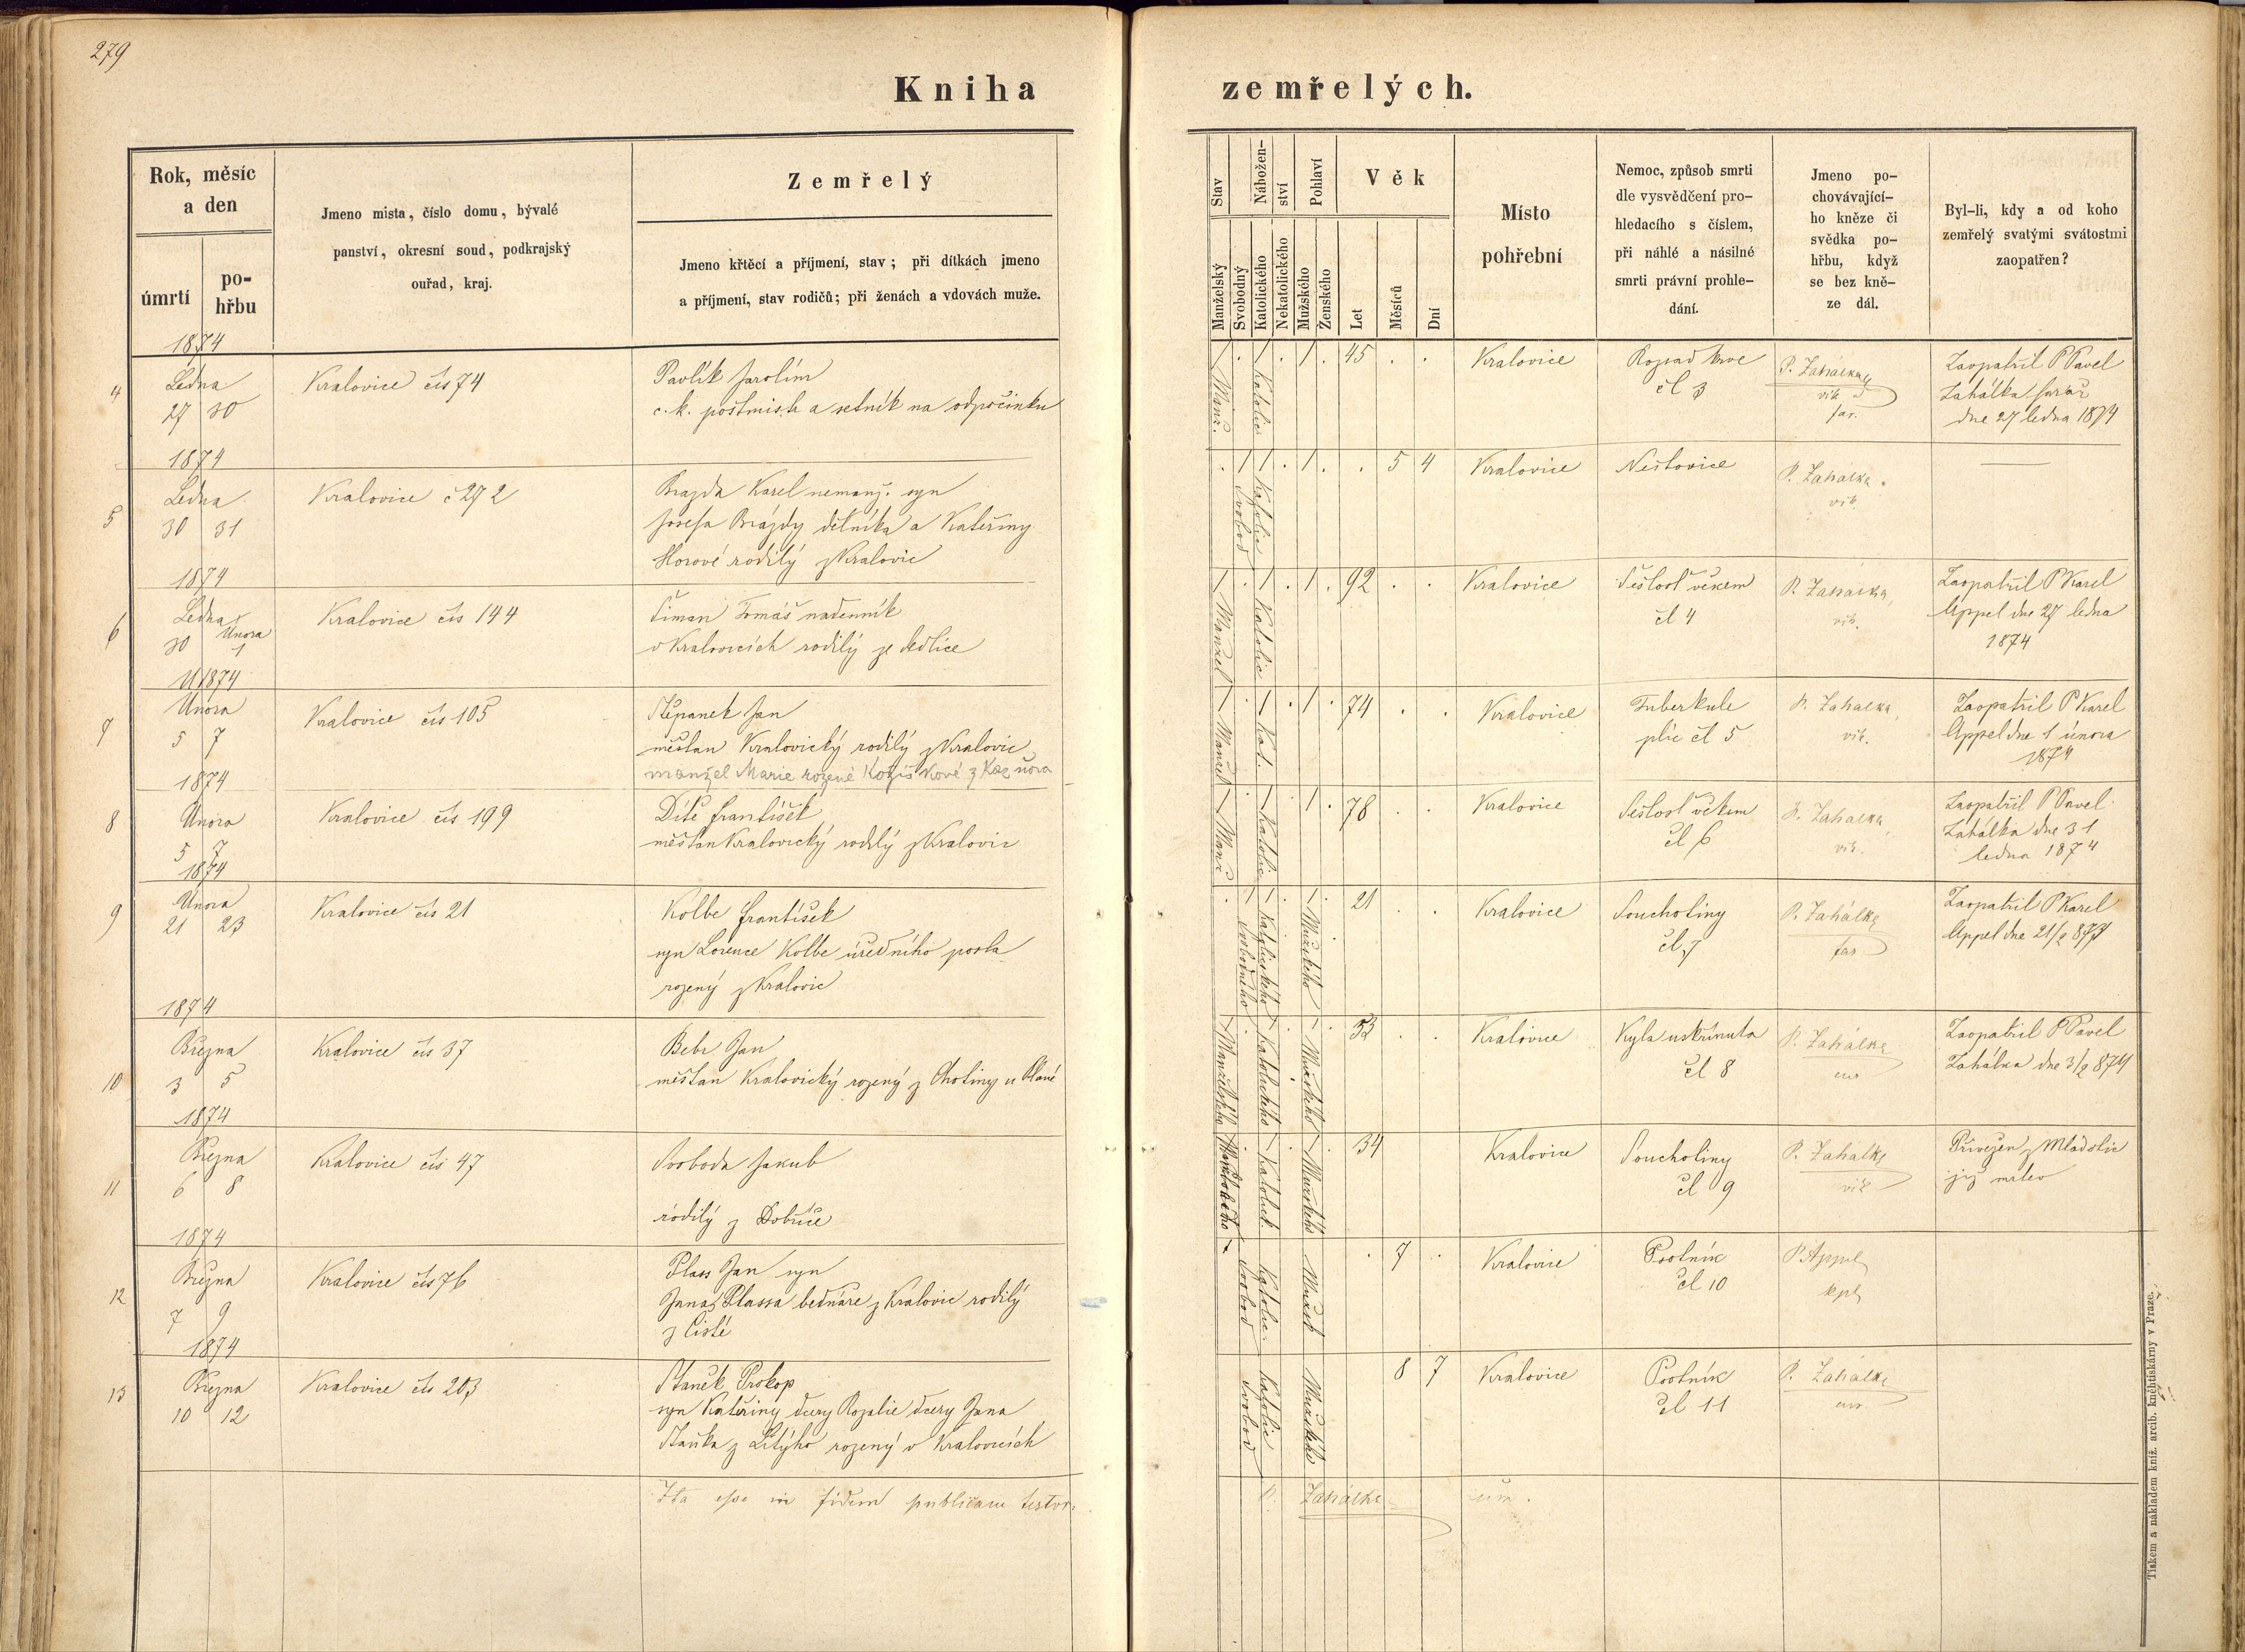 279
Kniha zemřelých.
Rok, měsíc
a den
úmrtí
po-
hřbu
Jmeno mista, číslo domu, bývalé
panství, okresní soud, podkrajský
ouřad, kraj.
Zemřelý
Jmeno křtěcí a příjmení, stav; při dítkách jmeno
a příjmení, stav rodičů; při ženách a vdovách muže.
Stav
Manželský
Svobodný
Nábožen-
ství
Katolického
Nekatolického
Pohlaví
Mužského
Ženského
Věk
Let
Měsíců
Dní
Místo
pohřební
Nemoc, způsob smrti
dle vysvědčení pro-
hledacího s číslem,
při náhlé a násilné
smrti právní prohle-
dání.
Jmeno po-
chovávající-
ho kněze či
svědka po-
hřbu, když
se bez kně-
ze dál.
Byl-li, kdy a od koho
zemřelý svatými svátostmi
zaopatřen?
1874
4
Ledna
27 30
Kralovice čís 74
Pavlík Jarolím
c. k. poštmistr a setník na odpočinku
Manž.
Katolic
45
Kralovice
Rozsad krve
čl 3
P. Zahálka
vik
far.
Zaopatřil P Pavel
Zahálka farář
dne 27 ledna 1874
1874
5
Ledna
30 31
Kralovice č 272
Brazda Karel nemanž. syn
Josefa Brázdy dělníka a Kateřiny
Horové rodilý z Kralovic
Svobod
Katolic
5 4
Kralovice
Neštovice
P. Zahálka
vik.
1874
6
Ledna Února
30 1
Kralovice čís 144
Šiman Tomáš nadenník
v Kralovicích rodilý ze Sedlice
Manžel
Katolic
92
Kralovice
Sešlosť věkem
čl 4
P. Zahálka
vik.
Zaopatřil P Karel
Appel dne 27 ledna
1874
1874
7
Února
5 7
Kralovice čís 105
Štěpanek Jan
měšťan Kralovický rodilý z Kralovic
manžel Marie rozené Kožíškové z Kaznova
Manžel
Kat.
74
Kralovice
Tuberkule
plic čl 5
P. Zahálka
vik.
Zaopatřil P Karel
Appel dne 1 února
1874
1874
8
Února
5 7
Kralovice čís 199
Dítě František
měšťan Kralovický rodilý z Kralovic
Manž
Katolic
78
Kralovice
Sešlosť věkem
čl 6
P. Zahálka
vik.
Zaopatřil P Pavel
Zahálka dne 31
ledna 1874
1874
9
Února
21 23
Kralovice čís 21
Kolbe František
syn Lorence Kolbe úředního posla
rozený z Kralovic
svobodného
Katolického
Mužského
21
Kralovice
Souchotiny
čl 7
P. Zahálka
far
Zaopatřil P Karel
Appel dne 21/2 874
1874
10
Března
3 5
Kralovice čís 37
Bebr Jan
měšťan Kralovický rozený z Chotiny u Plané
Manželského
Katolického
Mužského
53
Kralovice
Kyla uskřinuta
čl 8
P. Zahálka
Zaopatřil P Pavel
Zahálka dne 3/2 874
1874
11
Března
6 8
Kralovice čís 47
Svoboda Jakub
rodilý z Dobříče
Manželského
Katolick.
Mužského
34
Kralovice
Souchotiny
čl 9
P. Zahálka
vik
Přivežen z Mladotic
již mrtev
1874
12
Března
7 9
Kralovice čís 76
Plass Jan syn
Jana Plassa bednáře z Kralovic rodilý
z Čisté
Svobod
Katolic.
Mužsk
7
Kralovice
Psotník
čl 10
P. Appel
kpl
1874
13
Března
10 12
Kralovice čís 203
Staněk Prokop
syn Kateřiny dcery Rozalie dcery Jana
Staňka z Litýho rozený v Kralovicích
Svobod
Katolic
Mužského
8 7
Kralovice
Psotník
čl 11
P. Zahálka
Ita esse in fidem publicam testor:
P. Zahálka
Tiskem a nákladem kníž. arcib. kněhtiskárny v Praze.